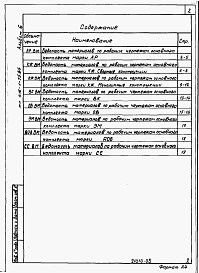 2
Содержание
Обозначение
Наименование
Стр.
АР ВМ Ведомость материалов по рабочим чертежам основного
комплекта марки АР
КЖ ВМ Ведомость материалов по рабочим чертежам основного
комплекта марки КЖ. Сборные конструкции
КЖ ВМ Ведомость материалов по рабочим чертежам основного
комплекта марки КЖ. Монолитные конструкции
ВК ВМ Ведомость материалов по рабочим чертежам основного
комплекта марки ВК
ОВ ВМ Ведомость материалов по рабочим чертежам основного
комплекта марки ОВ
ЭМ ВМ Ведомость материалов по рабочим чертежам основного
комплекта марки ЭМ
АОВ ВМ Ведомость материалов по рабочим чертежам основного
комплекта марки АОВ
СС ВМ Ведомость материалов по рабочим чертежам основного
комплекта марки СС
2
Формат А4